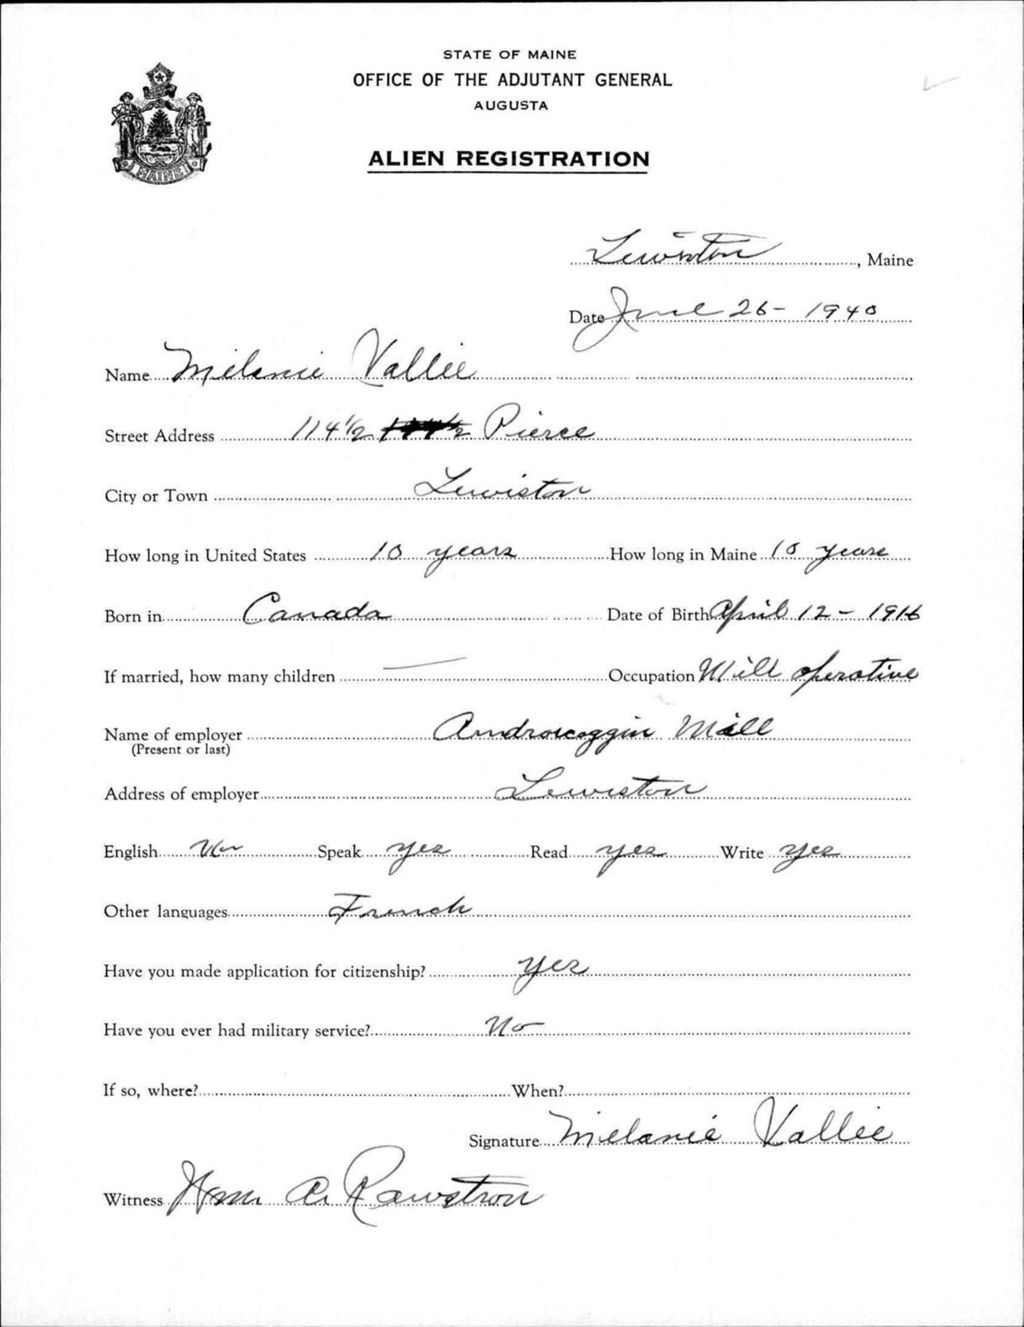 STATE OF MAINE
OFFICE OF THE ADJUTANT GENERAL
AUGUSTA
ALIEN REGISTRATION
MAINE
Lewiston, Maine
Date June 26 - 1940
Name Melanie Vallee
Street Address 114½ Pierce
City or Town Lewiston
How long in United States 10 years How long in Maine 10 years
Born in Canada Date of Birth April 12 - 1916
If married, how many children — Occupation Mill operative
Name of employer Androscoggin Mill
(Present or last)
Address of employer Lewiston
English No Speak yes Read yes Write yes
Other languages French
Have you made application for citizenship? yes
Have you ever had military service? No
If so, where? When?
Signature Melanie Vallee
Witness Wm A. Rawstron